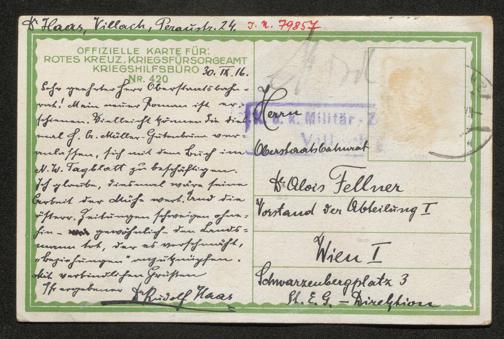 Dr Haas, Villach, Peraustr. 24. I. N. 79857
OFFIZIELLE KARTE FÜR:
ROTES KREUZ, KRIEGSFÜRSORGEAMT
KRIEGSHILFSBÜRO
NR. 420
30. IX. 16.
Sehr geehrter Herr Oberstaatsbahn-
rat! Mein neuer Roman ist er-
schienen. Vielleicht können Sie dies-
mal H. G. Müller-Gutenbrunn ver-
anlassen, sich mit dem Buch im
N. W. Tagblatt zu beschäftigen.
Ich glaube, diesmal wäre seine
Arbeit der Mühe wert. Und die
österr. Zeitungen schweigen ohne-
hin gewöhnlich den Lands-
mann tot, der es verschmäht,
"Beziehungen" anzuknüpfen.
Mit verbindlichen Grüßen
Ihr ergebener
Dr Rudolf Haas
k. u. k. Militär-Z
Villach
Herrn
Oberstaatsbahnrat
Dr Alois Fellner
Vorstand der Abteilung I
Wien I
Schwarzenbergplatz 3
St. E. G. – Direktion